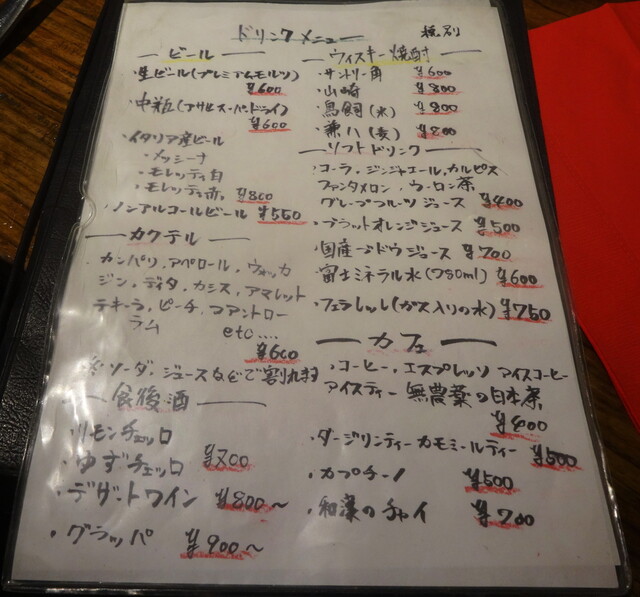 ドリンクメニュー 税別
ービールー
・生ビール(プレミアムモルツ)
¥600
・中瓶(アサヒスーパードライ)
¥600
・イタリア産ビール
・メッシーナ
・モレッティ白
・モレッティ赤 ¥800
・ノンアルコールビール ¥550
ーカクテルー
カンパリ、アペロール、ウォッカ
ジン、ディタ、カシス、アマレット
テキーラ、ピーチ、コアントロー
ラム etc....
¥600
※ソーダ、ジュースなどで割れます
ー食後酒ー
・リモンチェッロ
・ゆずチェッロ ¥700
・デザートワイン ¥800〜
・グラッパ ¥900〜
ーウィスキー焼酎
・サントリー角 ¥600
・山崎 ¥800
・鳥飼(米) ¥800
・兼八(麦) ¥800
ーソフトドリンクー
・コーラ、ジンジャエール、カルピス
ファンタメロン、ウーロン茶
グレープフルーツジュース ¥400
・ブラッドオレンジジュース ¥500
・国産ブドウジュース ¥700
・富士ミネラル水(780ml) ¥600
・フェラレッレ(ガス入りの水) ¥750
ーカフェー
・コーヒー、エスプレッソ アイスコーヒー
アイスティー 無農薬の日本茶
¥400
・ダージリンティー カモミールティー ¥500
・カプチーノ ¥500
・和漢のチャイ ¥700